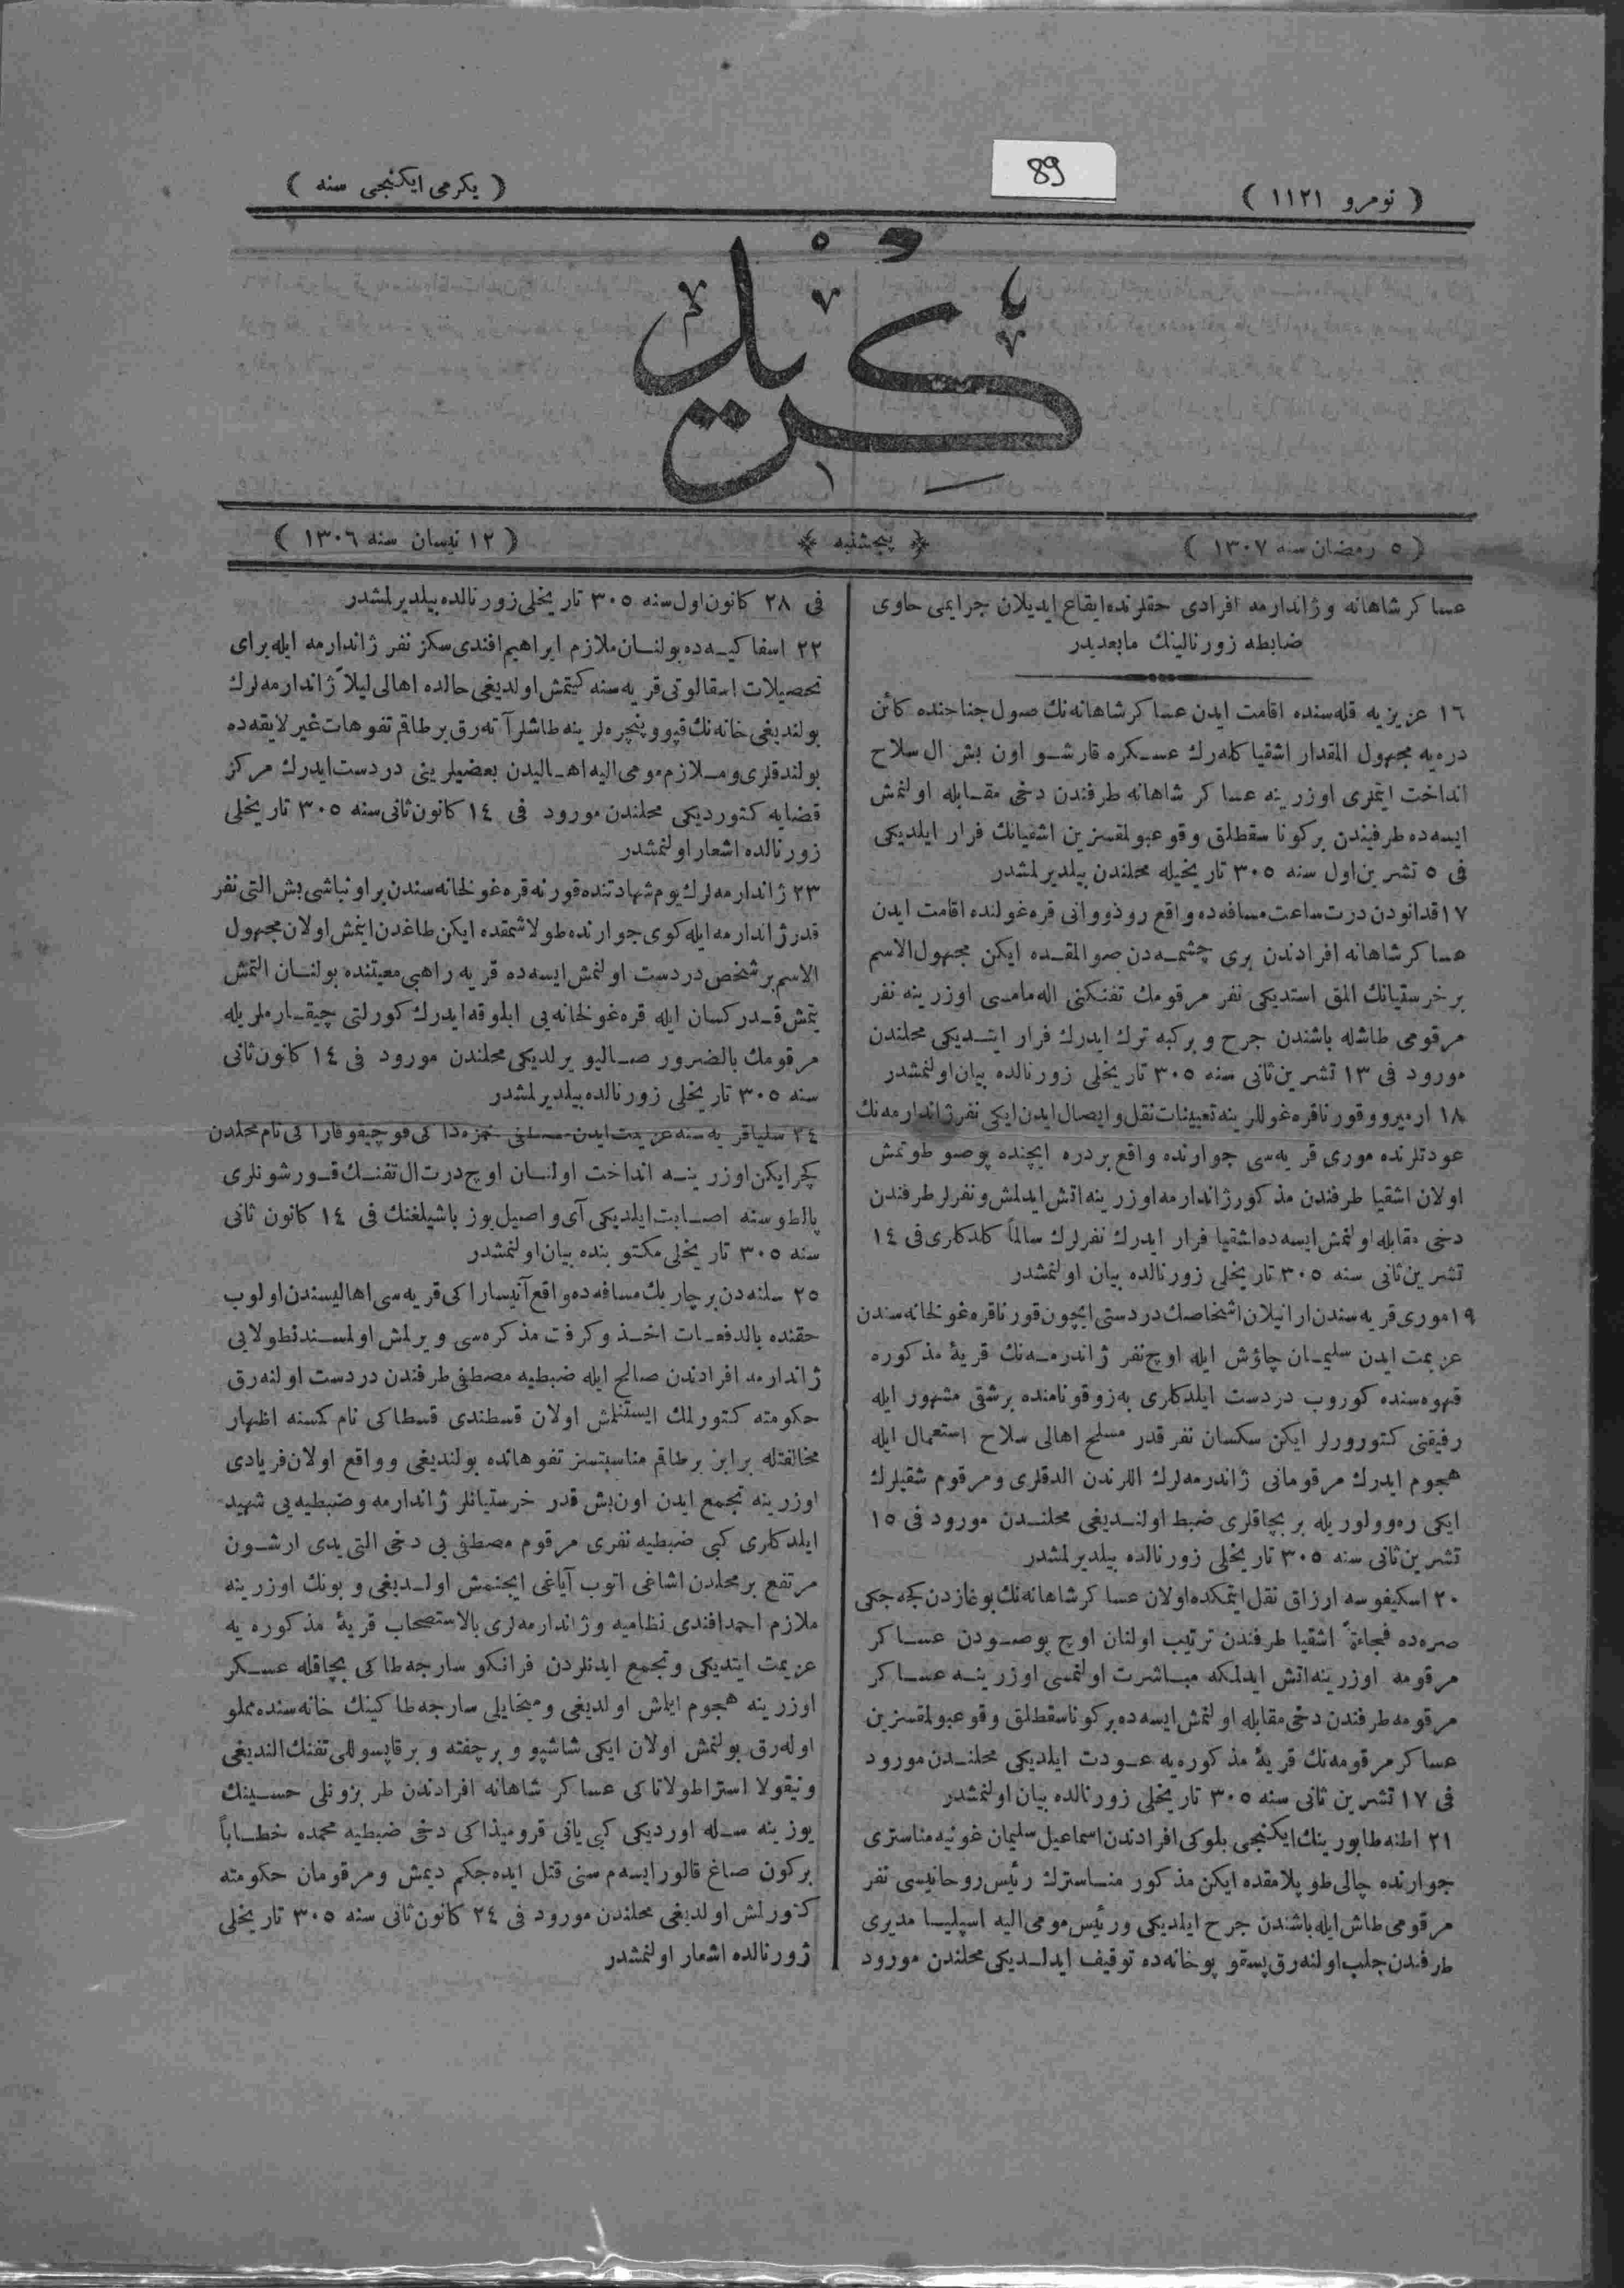 89
( نومرو ١١٢١ )
( يكرمی ايكنجی سنه )
كريد
( ٥ رمضان سنه ١٣٠٧ )
﴿ پنجشنبه ﴾
( ١٢ نيسان سنه ١٣٠٦ )
عساكر شاهانه وژاندارمه افرادی حقلرنده ايقاع ايديلان جرايمی حاوی
ضابطه زورنالينك مابعديدر
١٦ عزيزيه قله‌سنده اقامت ايدن عساكر شاهانه‌نك صول جناحنده كائن
دره‌يه مجهول المقدار اشقيا كله‌رك عسكره قارشو اون بش ال سلاح
انداخت ايتملری اوزرينه عساكر شاهانه طرفندن دخی مقابله اولنمش
ايسه‌ده طرفيندن بركونا سقطلق وقوعبولمقسزين اشقيانك فرار ايلديكی
فی ٥ تشرين اول سنه ٣٠٥ تاريخيله محلندن بيلديرلمشدر
١٧ قدانودن درت ساعت مسافه‌ده واقع رودووانی قره‌غولنده اقامت ايدن
عساكر شاهانه افرادندن بری چشمه‌دن صو المقده ايكن مجهول الاسم
بر خرستيانك المق استديكی نفر مرقومك تفنكنی اله‌مامسی اوزرينه نفر
مرقومی طاشله باشندن جرح و بركبه ترك ايدرك فرار ايتديكی محلندن
مورود فی ١٣ تشرين ثانی سنه ٣٠٥ تاريخلی زورنالده بيان اولنمشدر
١٨ ارميرو وقورنا قره‌غوللرينه تعيينات نقل وايصال ايدن ايكی نفر ژاندارمه‌نك
عودتلرنده موری قريه‌سی جوارنده واقع بر دره ايچنده پوصو طوتمش
اولان اشقيا طرفندن مذكور ژاندارمه اوزرينه اتش ايدلمش ونفرلر طرفندن
دخی مقابله اولنمش ايسه‌ده اشقيا فرار ايدرك نفرلرك سالماً كلدكلری فی ١٤
تشرين ثانی سنه ٣٠٥ تاريخلی زورنالده بيان اولنمشدر
١٩ موری قريه‌سندن ارانيلان اشخاصك دردستی ايچون قورنا قره‌غولخانه‌سندن
عزيمت ايدن سليمان چاؤش ايله اوچ نفر ژاندرمه‌نك قريۀ مذكوره
قهوه‌سنده كوروب دردست ايلدكلری به‌زوقو نامنده بر شقئ مشهور ايله
رفيقنی كتورورلر ايكن سكسان نفر قدر مسلح اهالی سلاح استعمال ايله
هجوم ايدرك مرقومانی ژاندرمه‌لرك اللرندن الدقلری ومرقوم شقيلرك
ايكی ره‌وولوريله بر بچاقلری ضبط اولنديغی محلندن مورود فی ١٥
تشرين ثانی سنه ٣٠٥ تاريخلی زورنالده بيلديرلمشدر
٢٠ اسكيفوسه ارزاق نقل ايتمكده اولان عساكر شاهانه‌نك بوغازدن كچه‌جكی
صره‌ده فجاءةً اشقيا طرفندن ترتيب اولنان اوچ پوصودن عساكر
مرقومه اوزرينه اتش ايدلمكه مباشرت اولنمسی اوزرينه عساكر
مرقومه طرفندن دخی مقابله اولنمش ايسه‌ده بركونا سقطلق وقوعبولمقسزين
عساكر مرقومه‌نك قريۀ مذكوره‌يه عودت ايلديكی محلندن مورود
فی ١٧ تشرين ثانی سنه ٣٠٥ تاريخلی زورنالده بيان اولنمشدر
٢١ اطنه طابورينك ايكنجی بلوكی افرادندن اسماعيل سليمان غونيه مناستری
جوارنده چالی طوپلامقده ايكن مذكور مناسترك رئيس روحانيسی نفر
مرقومی طاش ايله باشندن جرح ايلديكی ورئيس مومی اليه اسپليا مديری
طرفندن جلب اولنه‌رق پستمو پوخانه‌ده توقيف ايدلديكی محلندن مورود
فی ٢٨ كانون اول سنه ٣٠٥ تاريخلی زورنالده بيلديرلمشدر
٢٢ اسفاكيه‌ده بولنان ملازم ابراهيم افندی سكز نفر ژاندارمه ايله برای
تحصيلات اسقالوتی قريه‌سنه كيتمش اولديغی حالده اهالی ليلاً ژاندارمه‌لرك
بولنديغی خانه‌نك قپو وپنچره‌لرينه طاشلر آته‌رق برطاقم تفوهات غير لايقه‌ده
بولندقلری وملازم مومی اليه اهاليدن بعضيلرينی دردست ايدرك مركز
قضايه كتورديكی محلندن مورود فی ١٤ كانون ثانی سنه ٣٠٥ تاريخلی
زورنالده اشعار اولنمشدر
٢٣ ژاندارمه‌لرك يوم شهادتنده قورنه قره‌غولخانه‌سندن بر اونباشی بش التی نفر
قدر ژاندارمه ايله كوی جوارنده طولاشمقده ايكن طاغدن اينمش اولان مجهول
الاسم بر شخص دردست اولنمش ايسه‌ده قريه راهبی معيتنده بولنان التمش
يتمش قدر كسان ايله قره‌غولخانه‌يی ابلوقه ايدرك كورلتی چيقارملريله
مرقومك بالضرور صاليويرلديكی محلندن مورود فی ١٤ كانون ثانی
سنه ٣٠٥ تاريخلی زورنالده بيلديرلمشدر
٢٤ سليا قريه‌سنه عزيمت ايدن نام محلدن
كچر ايكن اوزرينه انداخت اولنان اوچ درت ال تفنك قورشونلری
پالطوسنه اصابت ايلديكی آی واصيل يوز باشيلغنك فی ١٤ كانون ثانی
سنه ٣٠٥ تاريخلی مكتوبنده بيان اولنمشدر
٢٥ سلنه‌دن بر چاريك مسافه‌ده واقع آنيساراكی قريه‌سی اهاليسندن اولوب
حقنده بالدفعات اخذ وكرفت مذكره‌سی ويرلمش اولمسندنطولايی
ژاندارمه افرادندن صالح ايله ضبطيه مصطفی طرفندن دردست اولنه‌رق
حكومته كتورلمك ايستنلمش اولان قسطندی قسطاكی نام كسنه اظهار
مخالفتله برابر برطاقم مناسبتسز تفوهاتده بولنديغی وواقع اولان فريادی
اوزرينه تجمع ايدن اون بش قدر خرستيانلر ژاندارمه وضبطيه‌يی شهيد
ايلدكلری كبی ضبطيه نفری مرقوم مصطفی يی دخی التی يدی ارشون
مرتفع بر محلدن اشاغی اتوب آياغی اينجنمش اولديغی وبونك اوزرينه
ملازم احمد افندی نظاميه وژاندارمه‌لری بالاستصحاب قريۀ مذكوره‌يه
عزيمت ايتديكی وتجمع ايدنلردن فرانكو سارجه‌طاكی بچاقله عسكر
اوزرينه هجوم ايلمش اولديغی وميخايلی سارجه‌طاكينك خانه‌سنده مملو
اوله‌رق بولنمش اولان ايكی شاشپو وبر چفته وبر قاپسوللی تفنك النديغی
ونيقولا استراطولاتاكی عساكر شاهانه افرادندن طربزونلی حسينك
يوزينه سله اورديكی كبی يانی قروميداكی دخی ضبطيه محمده خطاباً
بركون صاغ قالورايسه‌م سنی قتل ايده‌جكم ديمش ومرقومان حكومته
كتورلمش اولديغی محلندن مورود فی ٢٤ كانون ثانی سنه ٣٠٥ تاريخلی
ژورنالده اشعار اولنمشدر